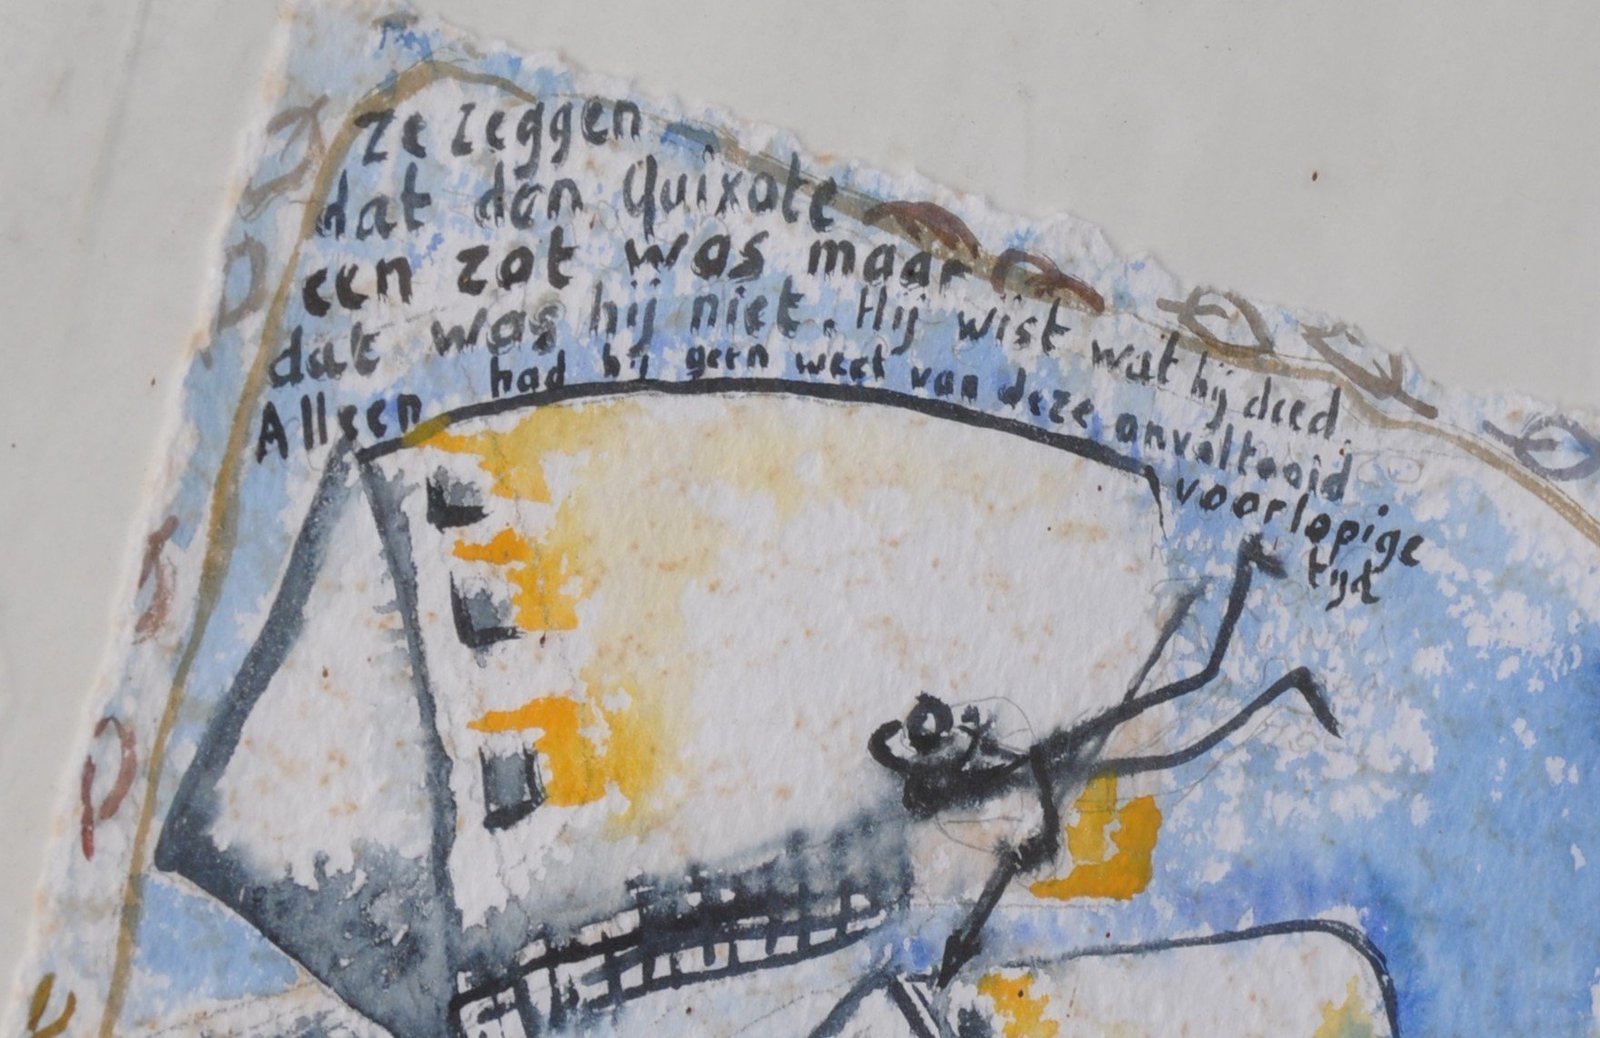 ze zeggen
dat don Quixote
een zot was maar
dat was hij niet. Hij wist wat hij deed.
Alleen had hij geen weet van deze onvoltooid
voorlopige
tijd